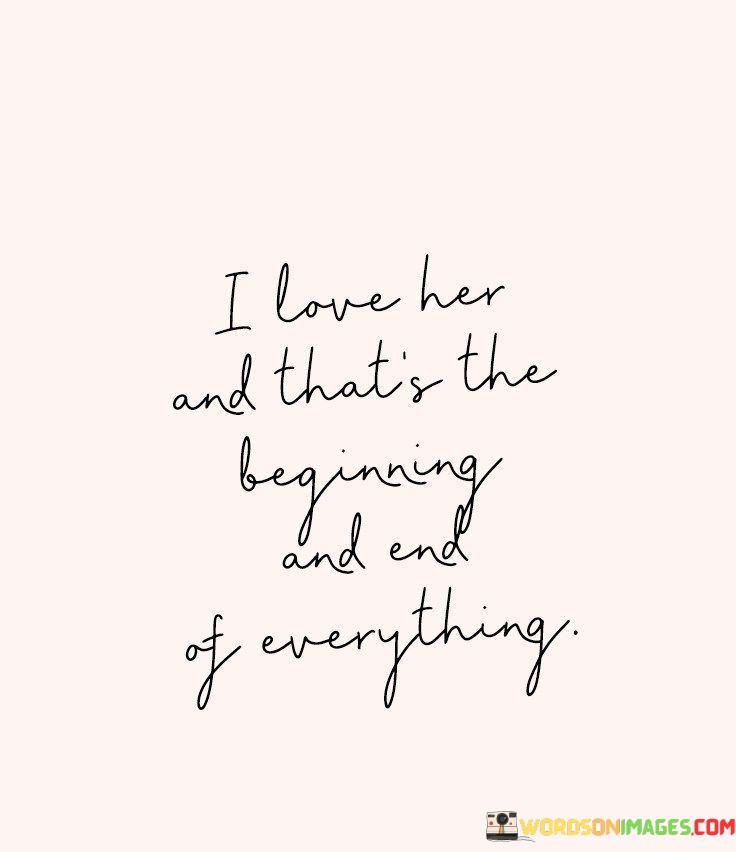 I love her
and that's the
beginning
and end
of everything.
WORDSONIMAGES.COM